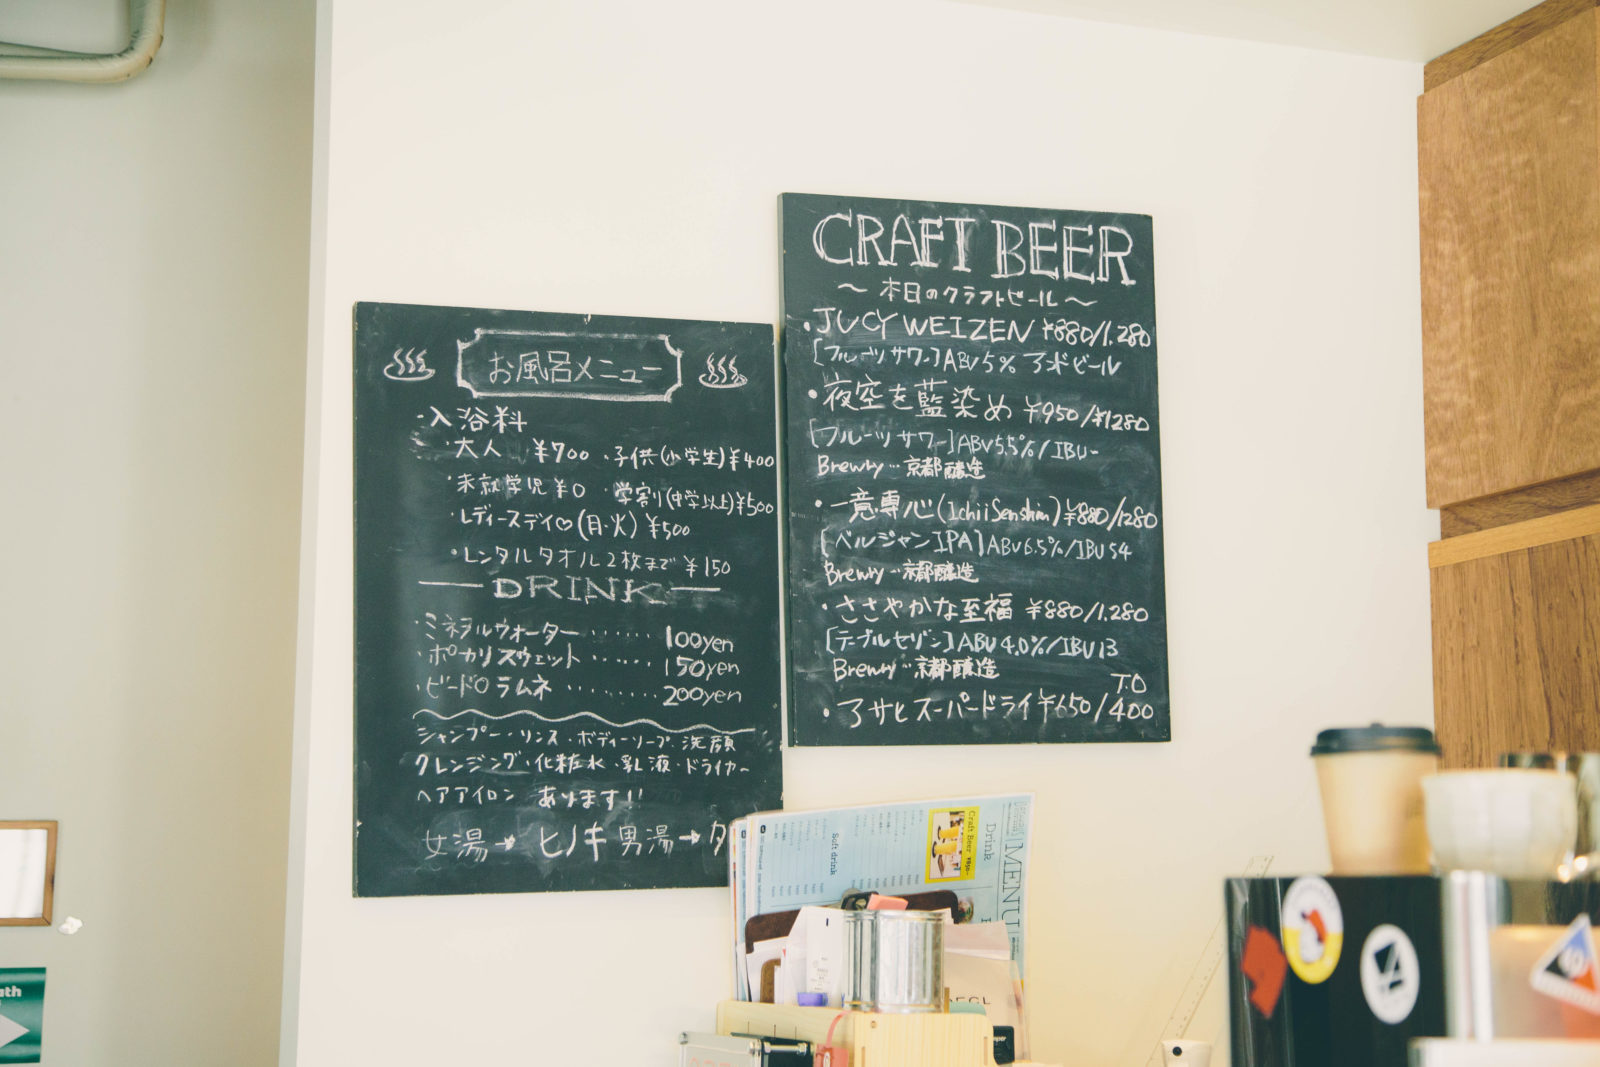 お風呂メニュー
・入浴料
・大人 ¥700 ・子供(小学生)¥400
・未就学児 ¥0 ・学割(中学以上)¥500
・レディースデイ♡(月・火) ¥500
・レンタルタオル2枚まで ¥150
DRINK
・ミネラルウォーター ・・・・・・ 100yen
・ポカリスウェット ・・・・・・ 150yen
・ビードロラムネ ・・・・・・・・ 200yen
シャンプー・リンス・ボディーソープ・洗顔
クレンジング・化粧水・乳液・ドライヤー
ヘアアイロン あります!!
女湯→ヒノキ 男湯→
CRAFT BEER
〜 本日のクラフトビール 〜
・JUCY WEIZEN ¥880/1,280
[フルーツサワー] ABV5%
・夜空を藍染め ¥950/¥1280
[フルーツサワー] ABV5.5%/IBU-
Brewry…京都醸造
・一意専心(Ichii Senshin) ¥880/1280
[ベルジャンIPA] ABV6.5%/IBU54
Brewry…京都醸造
・ささやかな至福 ¥880/1,280
[テーブルセゾン] ABV4.0%/IBU13
Brewry…京都醸造
T.O
・アサヒスーパードライ ¥650/400
MENU
Drink
Craft Beer
Soft drink